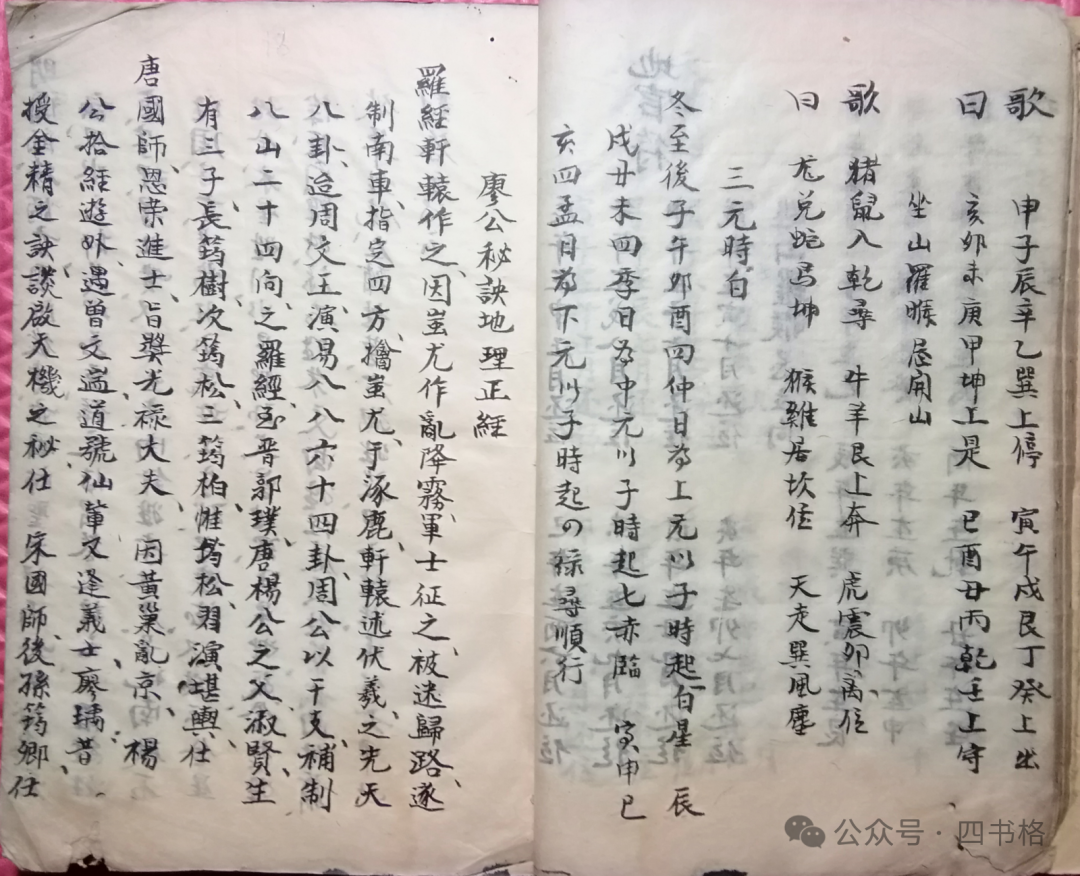 歌 申子辰辛乙巽上停 寅午戍艮丁癸上出
曰 亥卯未庚甲坤上是 巳酉丑丙乾壬上守
坐山羅睺忌開山
歌 猪鼠入乾尋 牛羊艮上奔 虎震卯离位
曰 尨兑蛇马坤 猴雞居坎位 天走巽風塵
三元時白
冬至後子午卯酉四仲日為上元以子時起一白星 辰
戍丑未四季日為中元以子時起七赤臨 寅申巳
亥四孟日為下元以子時起四祿尋順行
廖公秘訣地理正經
羅經軒轅作之、因蚩尤作亂降霧、軍士征之、被迷歸路、遂
制南車、指定四方、擒蚩尤、于涿鹿、軒轅述伏羲之先天
八卦、迨周文王、演易八八六十四卦、周公以干支、補制
八山二十四向、之羅經、至晋郭璞、唐楊公之父淑賢、生
有三子、長筠樹、次筠松、三筠柏、惟筠松、習演堪輿、仕
唐國師、恩榮進士、旨獎光禄大夫、因黃巢亂京、楊
公拾經遊外、遇曾文遄、道號仙軰又逢義士廖瑀、昔
授金精之訣、談啟天機之秘、仕宋國師、後孫筠卿、仕
公众号·四书格